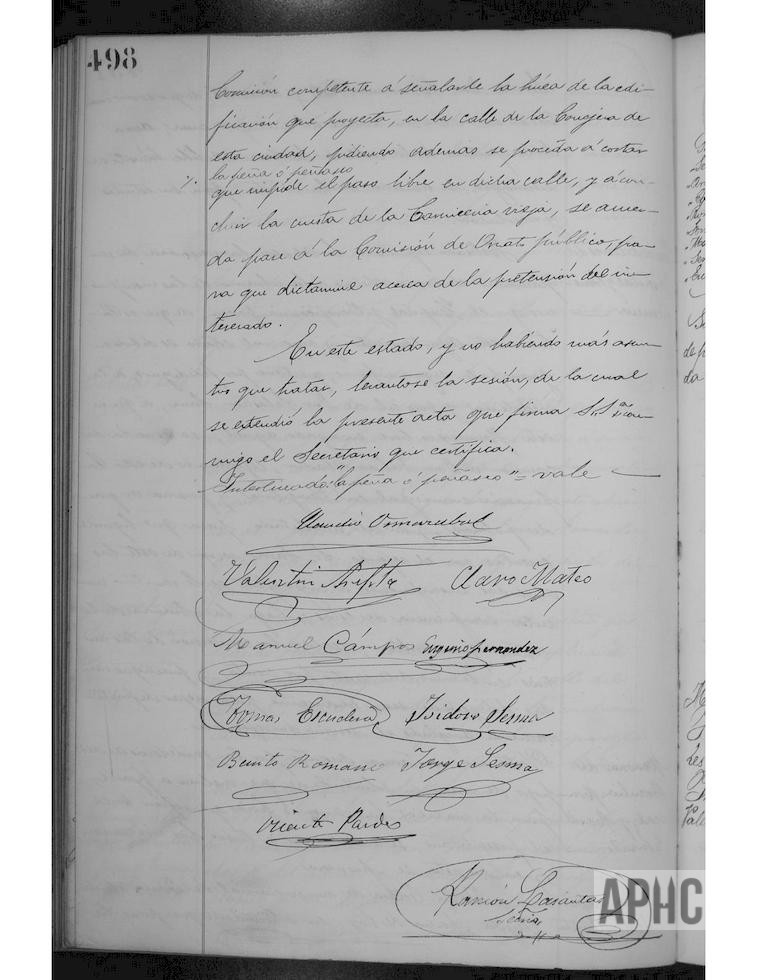 498
Comisión competente á señalarle la línea de la edi-
ficación que proyecta, en la calle de la Congiesa de
esta ciudad, pidiendo ademas se proceda á cortar
la peña ó peñasco
que impide el paso libre en dicha calle, y á con-
cluir la cuesta de la Carniceria vieja, se acuer-
da pase á la Comisión de Ornato público, pa-
ra que dictamine acerca de la pretensión del in-
teresado.
En este estado, y no habiendo más asun-
tos que tratar, levantose la sesión, de la cual
se extendió la presente acta que firma S.Sª con-
migo el Secretario que certifica.
Interlineado: "la peña ó peñasco" = vale
Claudio
Valentin Claro Mateo
Manuel Cámpos Eugenio Fernandez
Tomas Escudero Isidoro Sesma
Benito Romano Jorge Sesma
Vicente Pardos
Ramón Lasantas
Srio
APHC